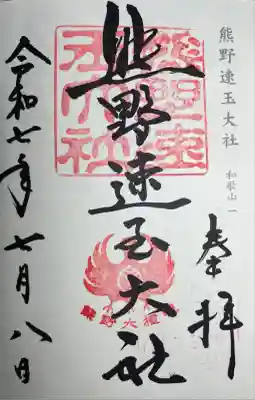 熊野速玉大社
和歌山一
奉拝
熊野速玉大社
熊野速玉大社
熊野大権現
令和七年七月八日